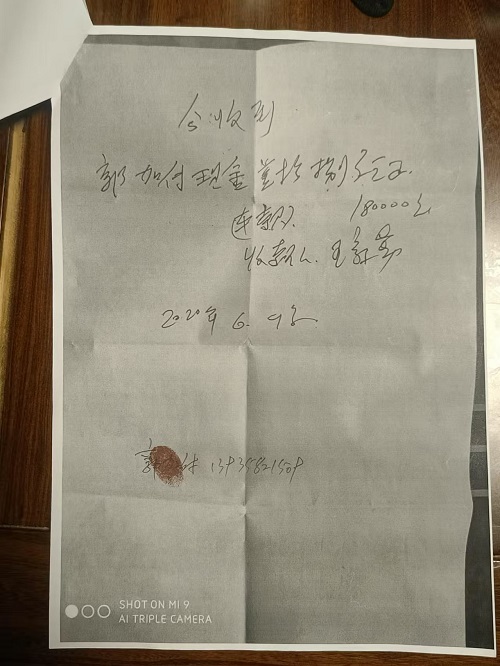 今收到
郭加付现金 壹拾捌万元正.
180000元
收款人. 王
2020年6.9号.
郭 付 13935821509
SHOT ON MI 9
AI TRIPLE CAMERA